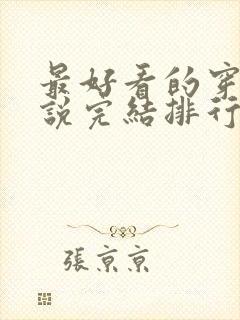 最好看的穿
說完結排行
張京京